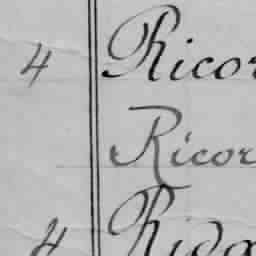 4 Ricor
Ricor
4 Rida